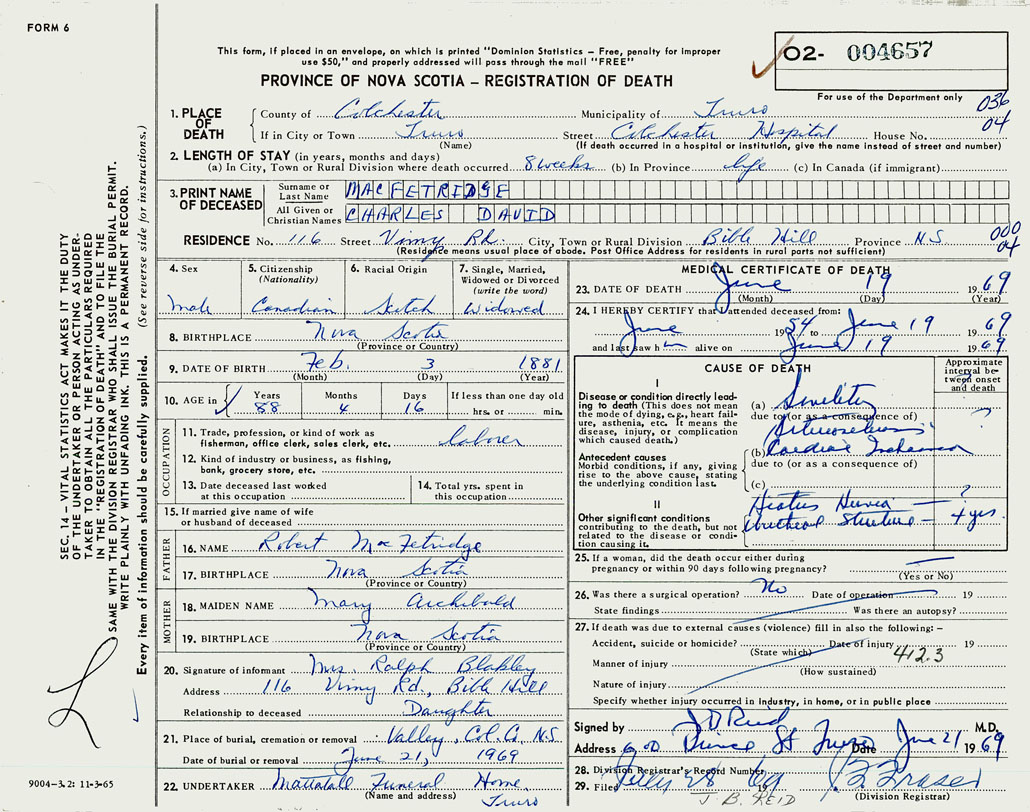 FORM 6
This form, if placed in an envelope, on which is printed "Dominion Statistics – Free, penalty for improper
use $50," and properly addressed will pass through the mail "FREE"
O2- 004657
PROVINCE OF NOVA SCOTIA – REGISTRATION OF DEATH
For use of the Department only
036
04
1. PLACE OF DEATH
County of Colchester Municipality of Truro
If in City or Town Truro Street Colchester Hospital House No.
(Name) (If death occurred in a hospital or institution, give the name instead of street and number)
2. LENGTH OF STAY (in years, months and days)
(a) In City, Town or Rural Division where death occurred 8 weeks (b) In Province life (c) In Canada (if immigrant)
3. PRINT NAME OF DECEASED
Surname or Last Name MACFETRIDGE
All Given or Christian Names CHARLES DAVID
RESIDENCE No. 116 Street Vimy Rd. City, Town or Rural Division Bible Hill Province N.S
(Residence means usual place of abode. Post Office Address for residents in rural parts not sufficient)
000
04
4. Sex
Male
5. Citizenship (Nationality)
Canadian
6. Racial Origin
Scotch
7. Single, Married, Widowed or Divorced (write the word)
Widowed
8. BIRTHPLACE Nova Scotia
(Province or Country)
9. DATE OF BIRTH Feb. 3 1881
(Month) (Day) (Year)
10. AGE in Years Months Days If less than one day old
88 4 16 hrs. or min.
OCCUPATION
11. Trade, profession or kind of work as
fisherman, office clerk, sales clerk, etc. laborer
12. Kind of industry or business, as fishing,
bank, grocery store, etc.
13. Date deceased last worked
at this occupation
14. Total yrs. spent in
this occupation
15. If married give name of wife
or husband of deceased
FATHER
16. NAME Robert MacFetridge
17. BIRTHPLACE Nova Scotia
(Province or Country)
MOTHER
18. MAIDEN NAME Mary Archibald
19. BIRTHPLACE Nova Scotia
(Province or Country)
20. Signature of informant Mrs. Ralph Blakley
Address 116 Vimy Rd., Bible Hill
Relationship to deceased Daughter
21. Place of burial, cremation or removal Valley, Col. Co, N.S.
Date of burial or removal June 21, 1969
22. UNDERTAKER Mattatall Funeral Home
(Name and address) Truro
MEDICAL CERTIFICATE OF DEATH
23. DATE OF DEATH June 19 1969
(Month) (Day) (Year)
24. I HEREBY CERTIFY that I attended deceased from:
June 1954 to June 19 1969
and last saw h im alive on June 19 1969
CAUSE OF DEATH
Approximate interval between onset and death
I
Disease or condition directly leading
to death (This does not mean
the mode of dying, e.g., heart failure,
asthenia, etc. It means the
disease, injury, or complication
which caused death.)
(a) Senility
due to (or as a consequence of)
Antecedent causes
Morbid conditions, if any, giving
rise to the above cause, stating
the underlying condition last.
(b) Cardiac
due to (or as a consequence of)
(c)
II
Other significant conditions
contributing to the death, but not
related to the disease or condition
causing it.
Hiatus Hernia – ?
Urethral Stricture – 4 yrs.
25. If a woman, did the death occur either during
pregnancy or within 90 days following pregnancy?
(Yes or No)
26. Was there a surgical operation? No Date of operation 19
State findings Was there an autopsy?
27. If death was due to external causes (violence) fill in also the following: –
Accident, suicide or homicide? Date of injury 19
(State which) 412.3
Manner of injury
(How sustained)
Nature of injury
Specify whether injury occurred in industry, in home, or in public place
Signed by J D Reid M.D.
Address 600 Prince St Truro Date June 21 1969
28. Division Registrar's Record Number
29. Filed 28 1969
J. B. REID
(Division Registrar)
SEC. 14 – VITAL STATISTICS ACT MAKES IT THE DUTY
OF THE UNDERTAKER OR PERSON ACTING AS UNDERTAKER
TO OBTAIN ALL THE PARTICULARS REQUIRED
IN THE "REGISTRATION OF DEATH" AND TO FILE THE
SAME WITH THE DIVISION REGISTRAR WHO SHALL ISSUE THE BURIAL PERMIT.
WRITE PLAINLY WITH UNFADING INK. THIS IS A PERMANENT RECORD.
Every item of information should be carefully supplied. (See reverse side for instructions.)
9004-3.2: 11-3-65